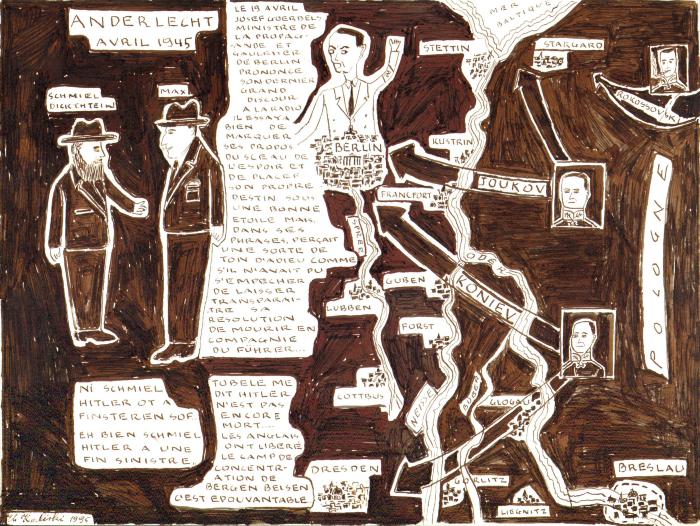 ANDERLECHT
AVRIL 1945
SCHMIEL
DICKTHTEIN
MAX
LE 19 AVRIL
JOSEF GOERBELS
MINISTRE DE
LA PROPAG-
ANDE ET
GAULEITER
DE BERLIN
PRONONCE
SON DERNIER
GRAND
DISCOUR
A LA RADIO
IL ESSAYA
BIEN DE
MARQUER
SES PROPOS
DU SCEAU DE
L'ESPOIR ET
DE PLACER
SON PROPRE
DESTIN SOUS
UNE BONNE
ETOILE MAIS,
DANS SES
PHRASES, PERÇAIT
UNE SORTE DE
TON D'ADIEU COMME
S'IL N'AVAIT PU
S'EMPECHER
DE LAISSER
TRANSPARAI-
TRE SA
RESOLUTION
DE MOURIR EN
COMPAGNIE
DU FÜHRER...
NI SCHMIEL
HITLER OT A
FINSTEREN SOF
EH BIEN SCHMIEL
HITLER A UNE
FIN SINISTRE.
TUBELE ME
DIT HITLER
N'EST PAS
ENCORE
MORT....
LES ANGLAIS
ONT LIBERÉ
LE CAMP DE
CONCENTR-
ATION DE
BERGEN BELSEN
C'EST EPOUVANTABLE
MER
BALTIQUE
STETTIN
STARGARD
ROKOSSOVSKI
BERLIN
KUSTRIN
JOUKOV
FRANCFORT
SPREE
ODER
POLOGNE
GUBEN
KONIEV
LUBBEN
FORST
COTTBUS
NEISSE
BOBER
GLOGAU
DRESDEN
GORLITZ
LIEGNITZ
BRESLAU
Kaliski 1995